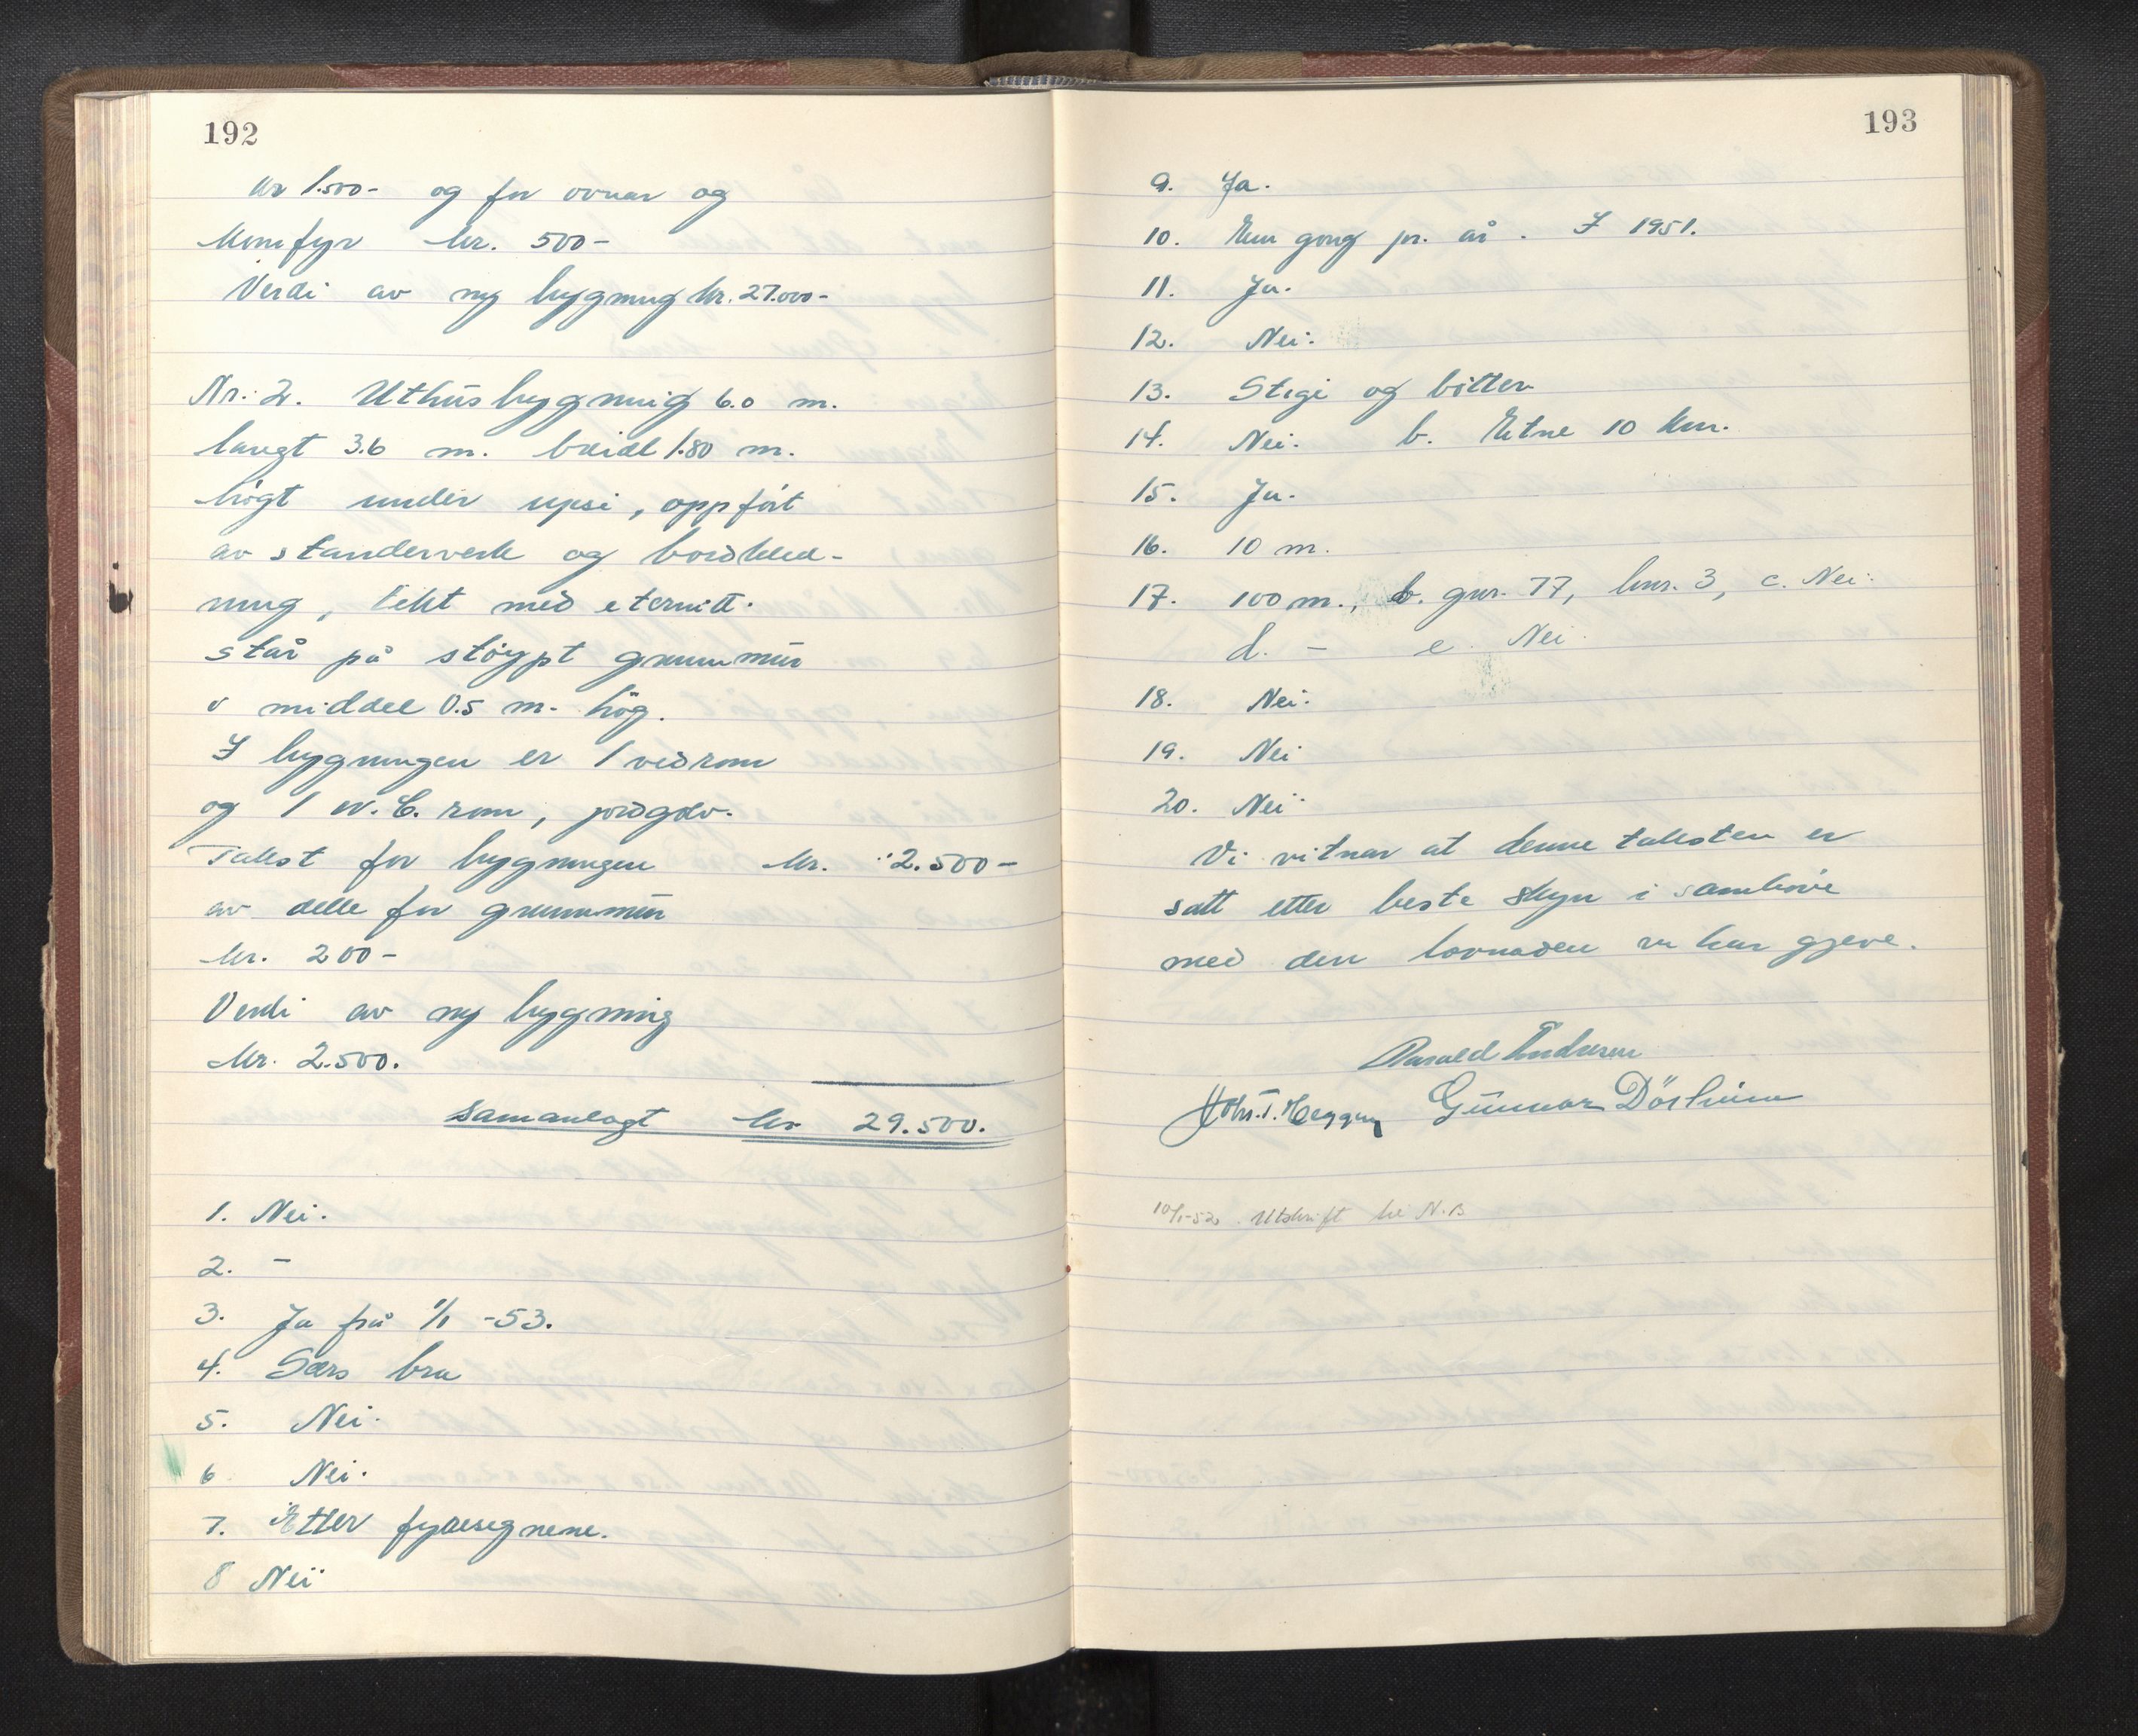 192
kr 1.500- og for ovnar og
komfyr kr. 500-
Verdi av ny bygning kr. 27.000-
Nr: 2. Uthusbygning 6.0 m.
langt 3.6 m. breidt 1.80 m.
høgt under upsi, oppført
av standerverk og bordkled-
ning, tekt med eternitt.
står på støypt grunnmur
i middel 0.5 m. høg.
I bygningen er 1 vedrom
og 1 W.C. rom, jordgolv.
Takst for bygningen kr. 2.500-
av dette for grunnmur
kr. 200-
Verdi av ny bygning
kr. 2.500.
Samanlagt kr 29.500.
1. Nei.
2. -
3. Ja frå 1/1 -53.
4. Særs bra
5. Nei.
6 Nei.
7. Etter fyresegnene.
8 Nei
193
9. Ja.
10. Ein gong pr. år. I 1951.
11. Ja.
12. Nei.
13. Stigi og bøtter
14. Nei. b. Etne 10 km.
15. Ja.
16. 10 m.
17. 100 m., b. gnr. 77, bnr. 3, c. Nei.
d. - e. Nei.
18. Nei.
19. Nei
20. Nei
Vi vitnar at denne taksten er
satt etter beste skyn i samhøve
med den lovnaden vi har gjeve.
Gunnar
10/1-52. Utskrift til N.B.